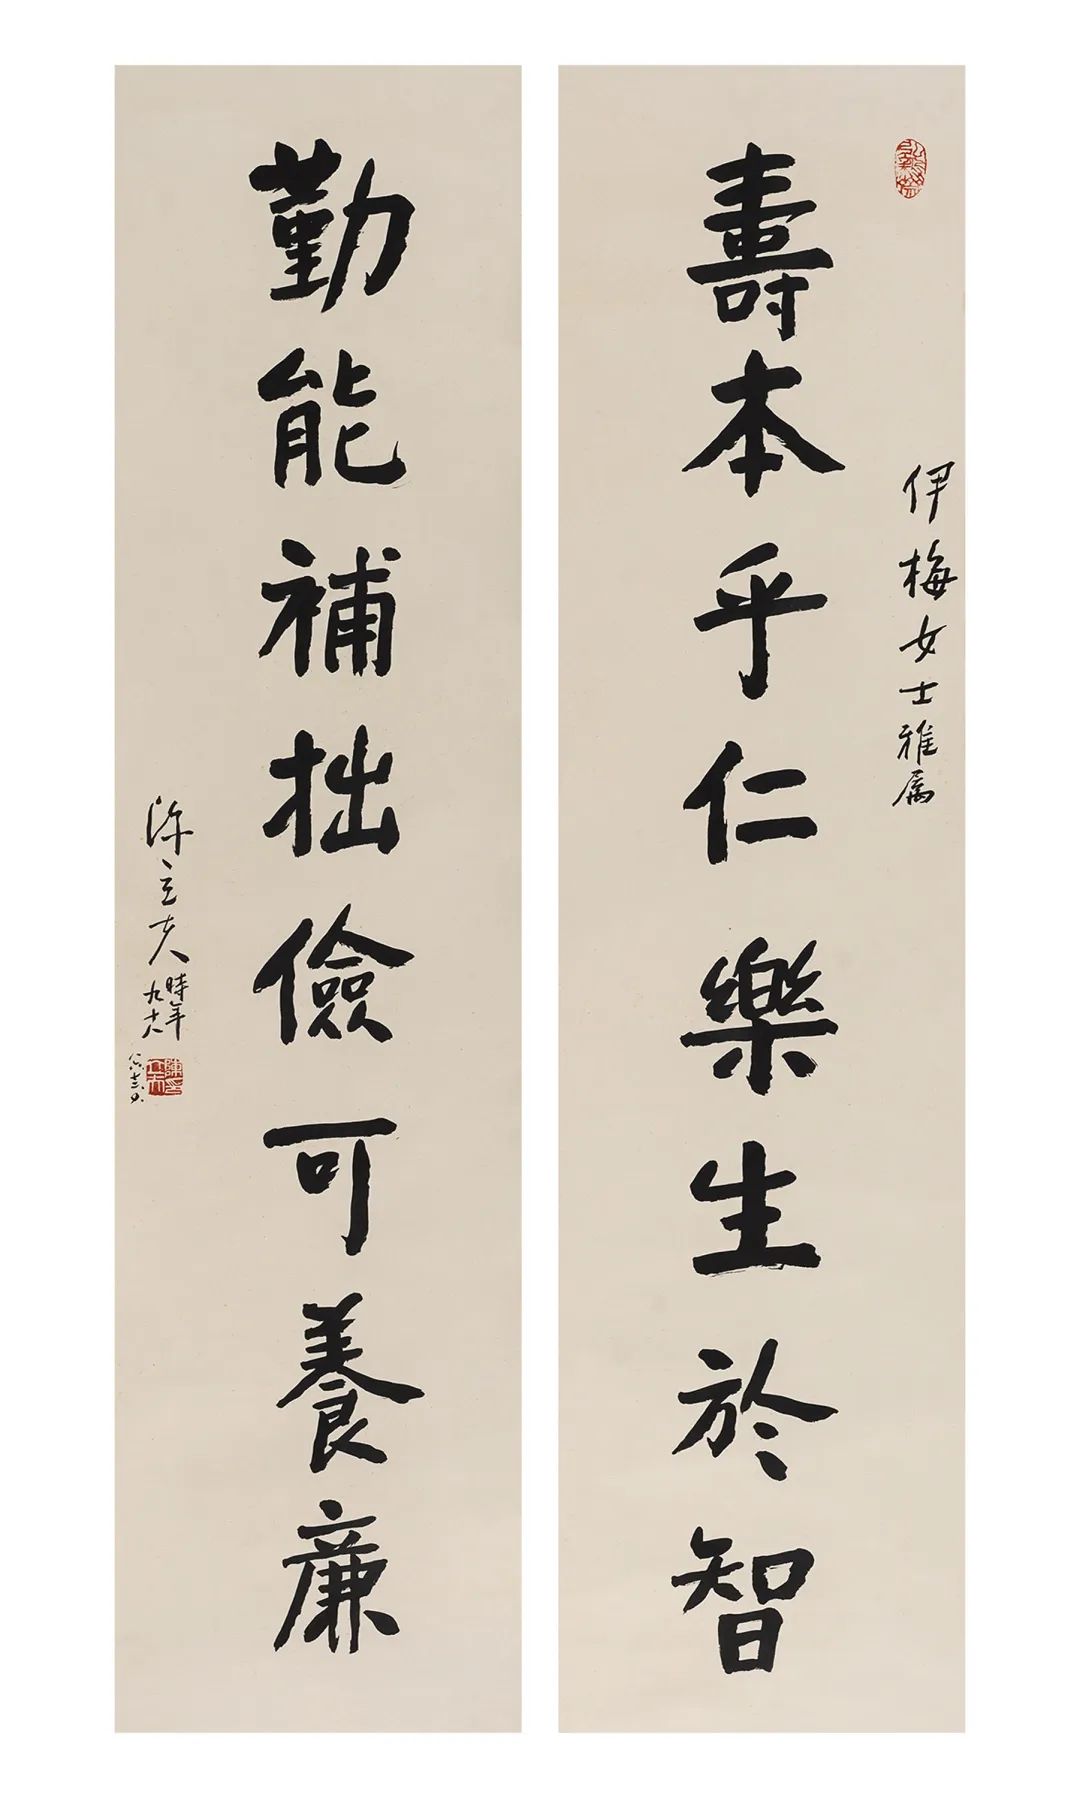 伊梅女士雅属
壽本乎仁樂生於智
勤能補拙儉可養廉
陳立夫
時年
九十八